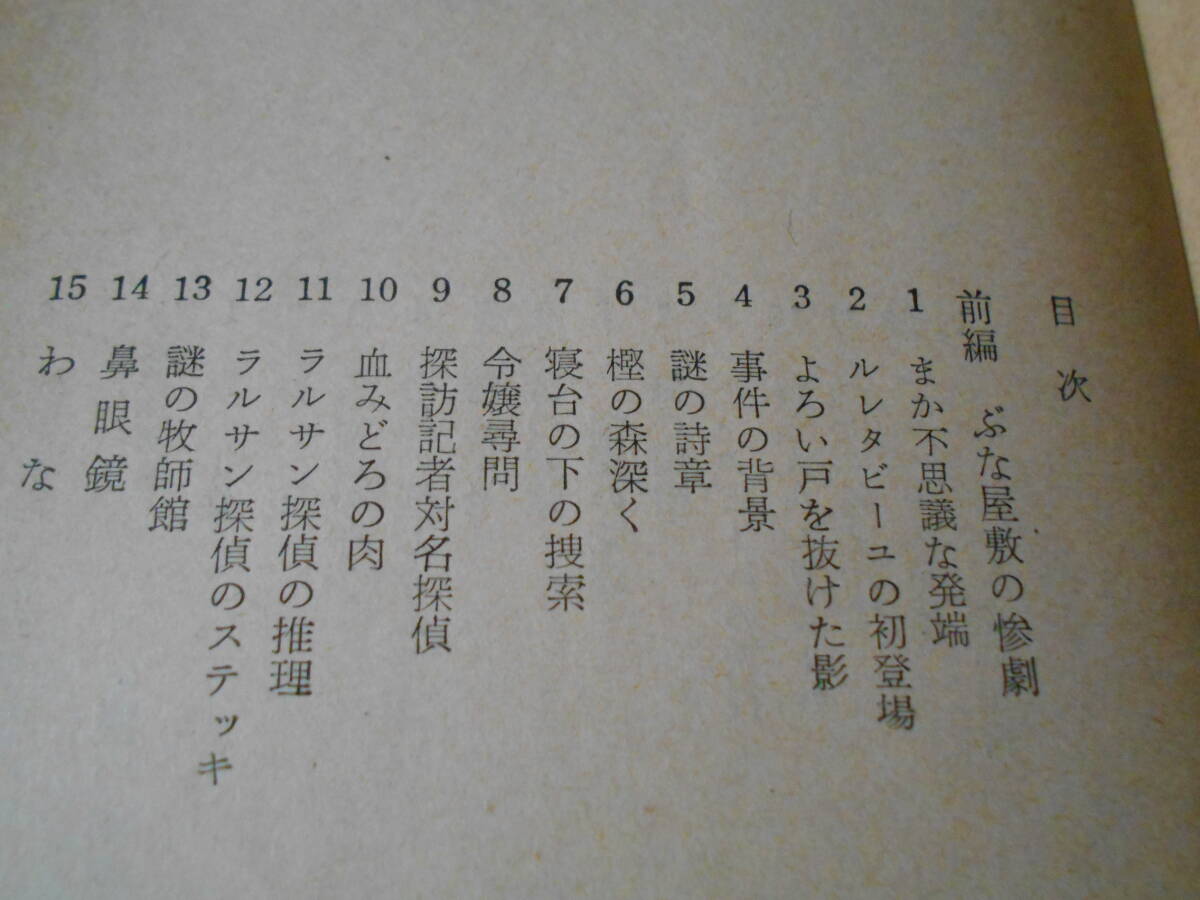 目次
前編 ぶな屋敷の惨劇
1 まか不思議な発端
2 ルレタビーユの初登場
3 よろい戸を抜けた影
4 事件の背景
5 謎の詩章
6 樫の森深く
7 寝台の下の捜索
8 令嬢尋問
9 探訪記者対名探偵
10 血みどろの肉
11 ラルサン探偵の推理
12 ラルサン探偵のステッキ
13 謎の牧師館
14 鼻眼鏡
15 わな